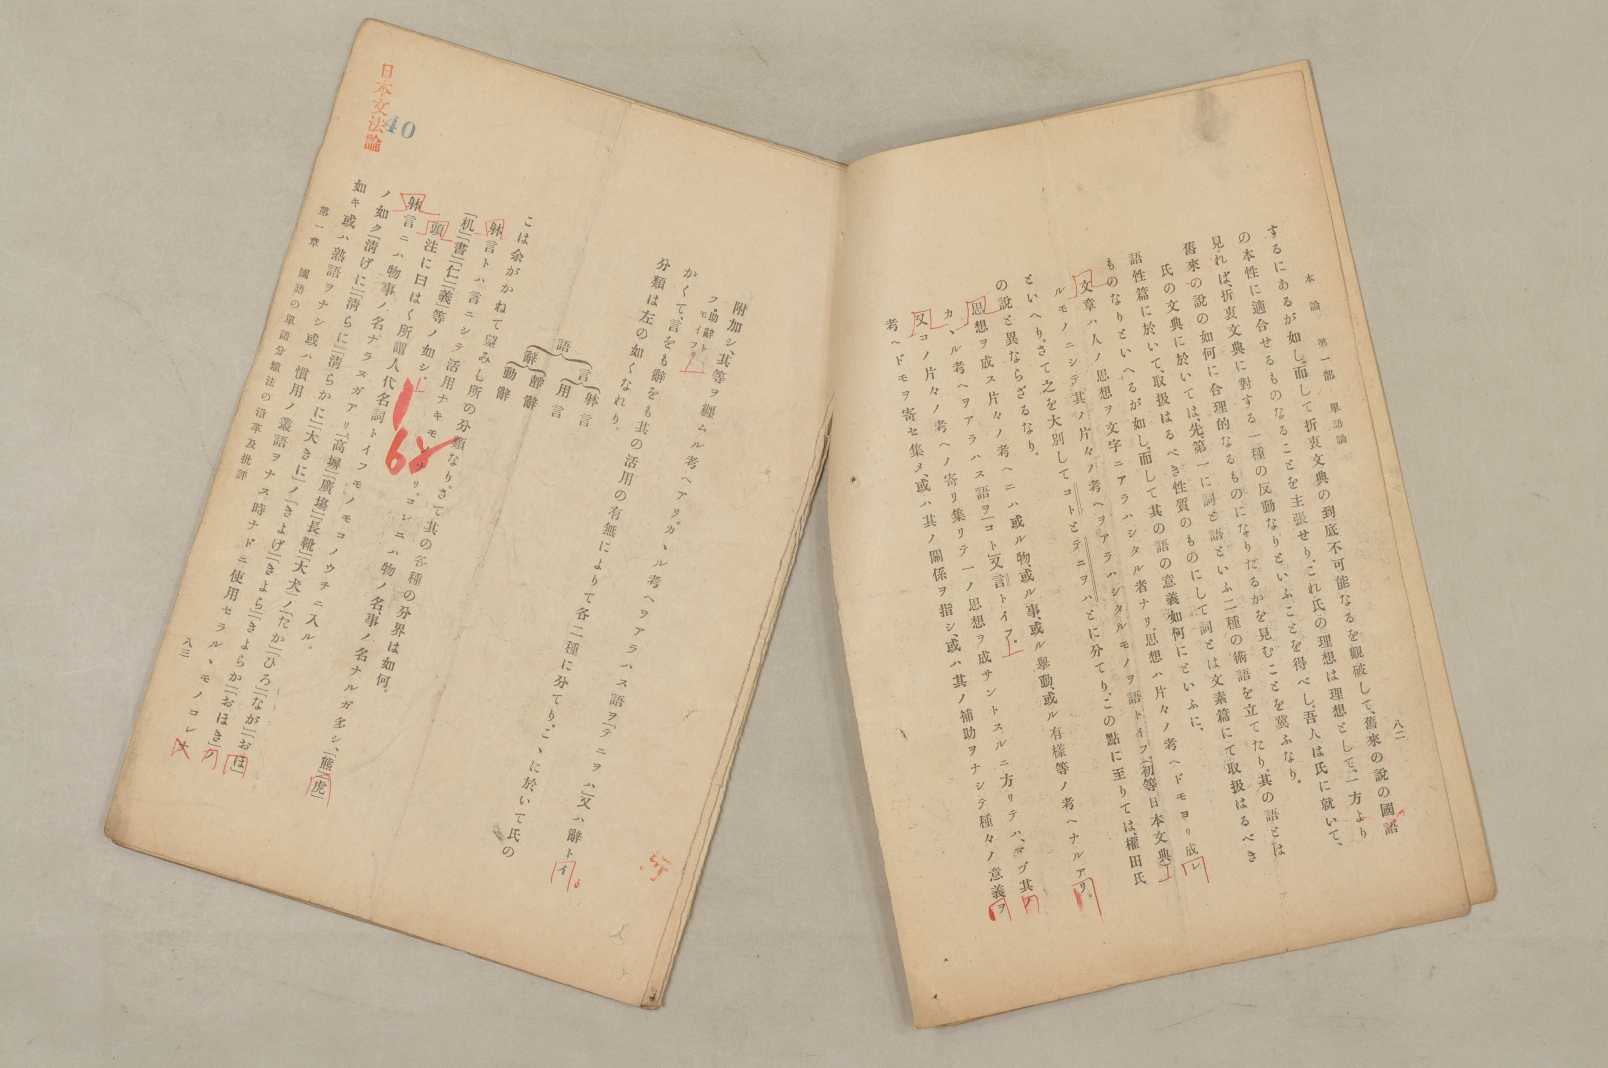 本論　第一部　單語論
八二
するにあるが如し。而して折衷文典の到底不可能なるを觀破して、舊來の說の國語
の本性に適合せるものなることを主張せり。これ氏の理想は理想として、一方より
見れば、折衷文典に對する一種の反動なりといふことを得べし。吾人は氏に就いて、
舊來の說の如何に合理的なるものになりたるかを見むことを冀ふなり。
氏の文典に於いては、先、第一に詞と語といふ二種の術語を立てたり。其の語とは
語性篇に於いて、取扱はるべき性質のものにして詞とは文素篇にて取扱はるべき
ものなりといへるが如し。而して其の語の意義如何にといふに、
文章ハ人ノ思想ヲ文字ニアラハシタル者ナリ。思想ハ片々ノ考ヘドモヨリ成レ
ルモノニシテ其ノ片々ノ考ヘヲアラハシタルモノヲ語トイフ。(初等日本文典)
といへり。さて之を大別してコトとテニヲハとに分てり。この點に至りては、權田氏
の說と異ならざるなり。
思想ヲ成ス片々ノ考ヘニハ或ル物、或ル事、或ル擧動、或ル有樣等ノ考ヘナルアリ。
カヽル考ヘヲアラハス語ヲ「コト」又言トイフ。
又コノ片々ノ考ヘノ寄リ集リテ一ノ思想ヲ成サントスルニ方リテハ、マヅ其ノ
考ヘドモヲ寄セ集メ、或ハ其ノ關係ヲ指シ、或ハ其ノ補助ヲナシテ種々ノ意義ヲ
附加シ、其等ヲ纒ムル考ヘアリ。カヽル考ヘヲアラハス語ヲ「テニヲハ」又ハ辭トイ
フ。助辭トモイフ。
かくて、言をも辭をも其の活用の有無によりて各二種に分てり。こゝに於いて氏の
分類は左の如くなれり。
語
言
躰言
用言
辭
靜辭
動辭
こは余がかねて望みし所の分類なり。さて其の各種の分界は如何。
躰言トハ言ニシテ活用ナキモノナリ。コレニハ物ノ名、事ノ名ナルガ多シ、「熊」「虎」
「机」「書」「仁」「義」等ノ如シ。
頭注に曰はく所謂人代名詞トイフモノモコノウチニ入ル。
躰言ニハ物事ノ名ナラヌガアリ。「高塀」「廣場」「長靴」「大犬」ノ「たか」「ひろ」「なが」「おほ」
ノ如ク「淸げに」「淸らに」「淸らかに」「大きに」ノ「きよげ」「きよら」「きよらか」「おほき」ノ
如キ或ハ熟語ヲナシ或ハ慣用ノ叢語ヲナス時ナドニ使用セラルヽモノコレナ
第一章　國語の單語分類法の沿革及批評
八三
日本文法論
40